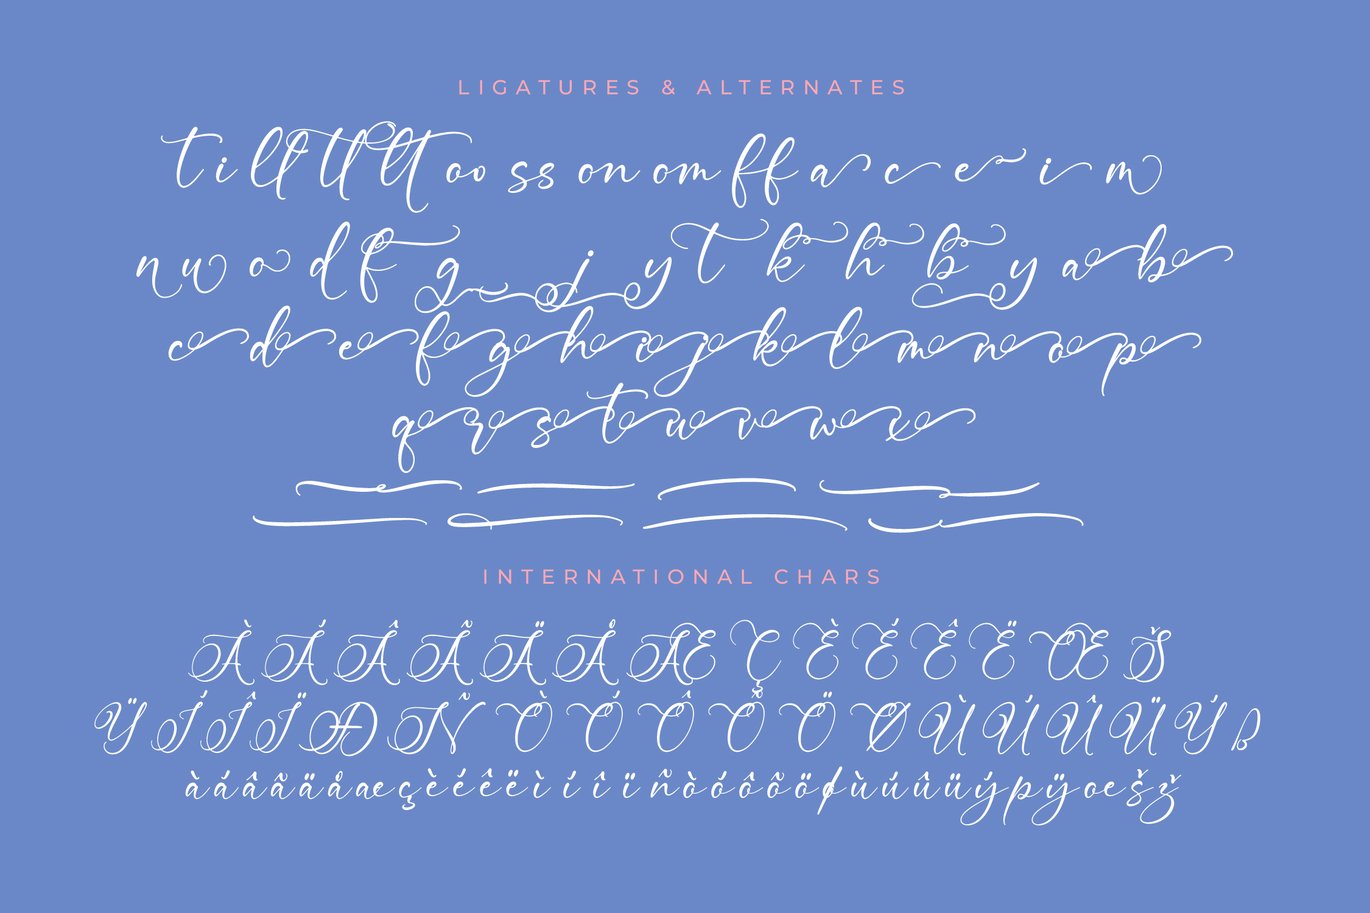 LIGATURES & ALTERNATES
Ti ll tt lt oo ss on om ff a c e i m
n w o d f g j y t k h b y a b
c d e f g h i j k l m n o p
q r s t u v w x
INTERNATIONAL CHARS
À Á Â Ã Ä Å Æ Ç È É Ê Ë Œ Š
Ÿ Í Î Ï Ð Ñ Ò Ó Ô Õ Ö Ø Ù Ú Û Ü Ý ß
à á â ã ä å æ ç è é ê ë ì í î ï ñ ò ó ô õ ö ø ù ú û ü ý þ ÿ œ š ž